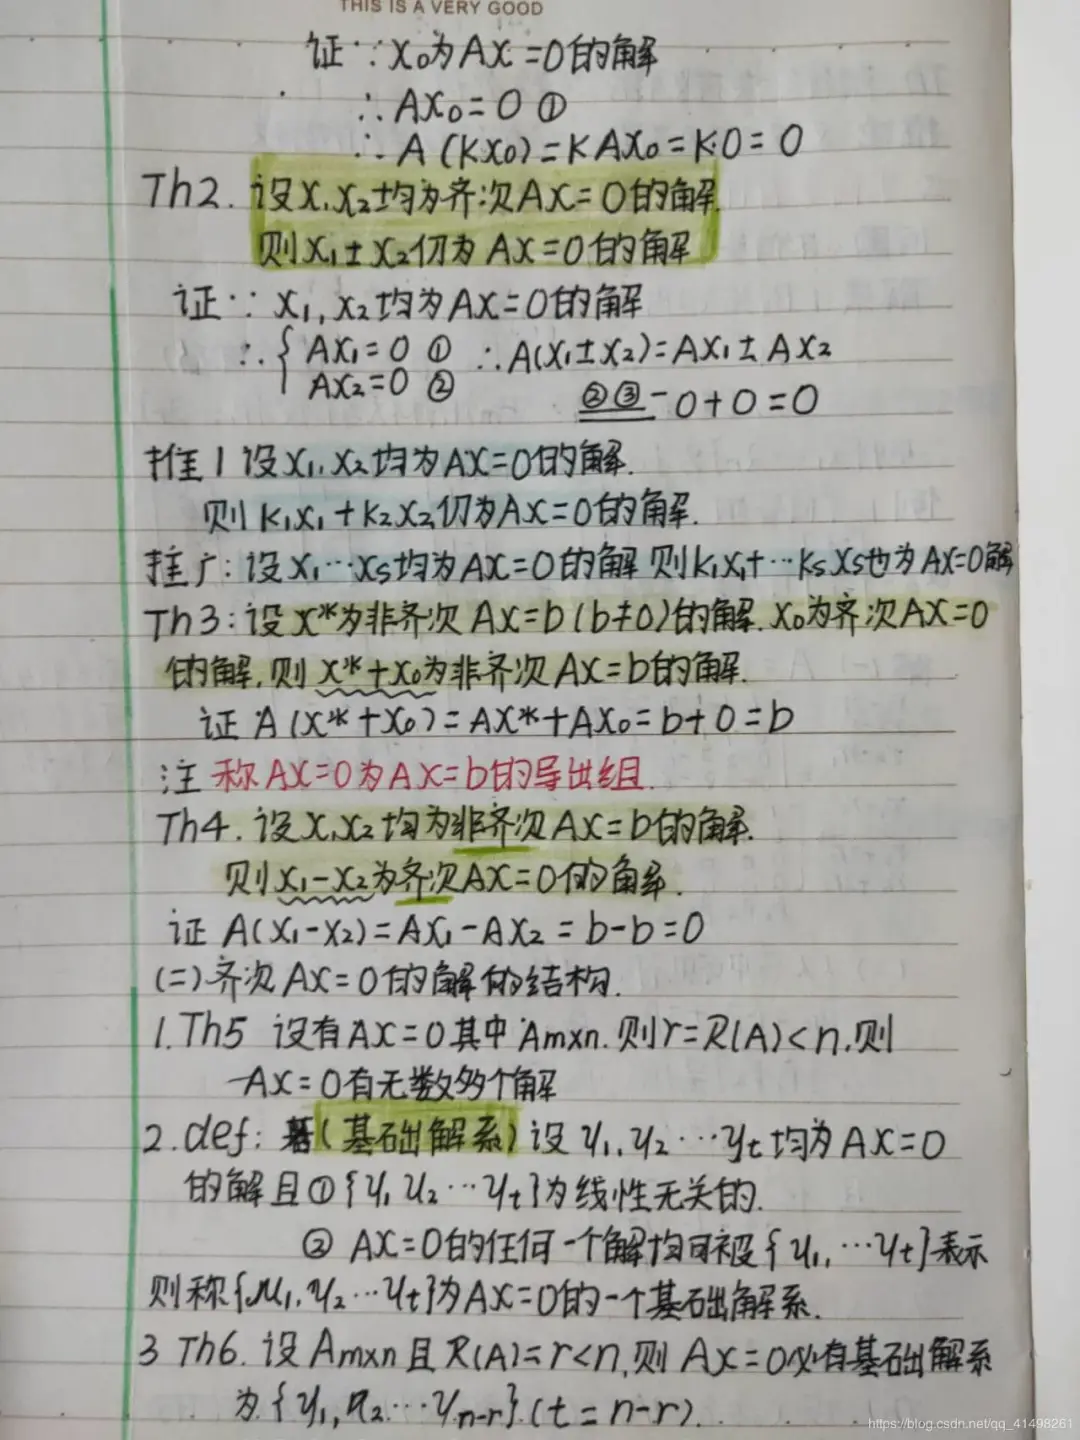 THIS IS A VERY GOOD
证∵X₀为AX=0的解
∴AX₀=0 ①
∴A(KX₀)=KAX₀=K·0=0
Th2. 设X₁X₂均为齐次AX=0的解.
则X₁±X₂仍为AX=0的解
证∵X₁,X₂均为AX=0的解
∴{AX₁=0 ① ∴A(X₁±X₂)=AX₁±AX₂
AX₂=0 ② ②③ 0+0=0
推1 设X₁,X₂均为AX=0的解.
则K₁X₁+K₂X₂仍为AX=0的解.
推广:设X₁…Xs均为AX=0的解则K₁X₁+…KsXs也为AX=0解
Th3:设X*为非齐次AX=b(b≠0)的解.X₀为齐次AX=0
的解,则X*+X₀为非齐次AX=b的解.
证A(X*+X₀)=AX*+AX₀=b+0=b
注 称AX=0为AX=b的导出组.
Th4. 设X₁X₂均为非齐次AX=b的解.
则X₁-X₂为齐次AX=0的解.
证A(X₁-X₂)=AX₁-AX₂=b-b=0
(二)齐次AX=0的解的结构.
1.Th5 设有AX=0其中Amxn.则r=R(A)<n,则
AX=0有无数多个解
2.def:(基础解系)设y₁,y₂…yt均为AX=0
的解且①{y₁y₂…yt}为线性无关的.
② AX=0的任何一个解均可被{y₁,…yt}表示
则称{y₁,y₂…yt}为AX=0的一个基础解系.
3 Th6.设Amxn且R(A)=r<n,则AX=0必有基础解系
为{y₁,y₂…yn-r}.(t=n-r).
https://blog.csdn.net/qq_41498261